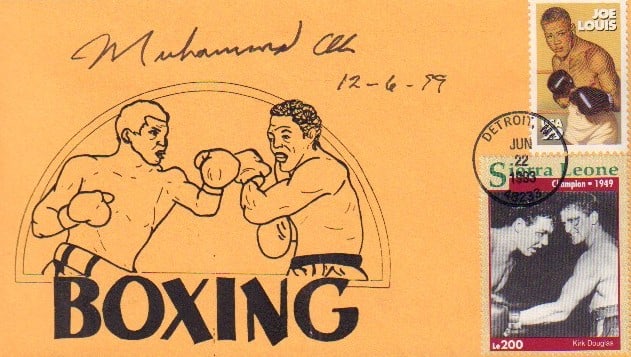 Muhammad Ali
12-6-99
JOE
LOUIS
USA
DETROIT, MI
JUN
22
1993
48233
Sierra Leone
Champion • 1949
Le200
Kirk Douglas
BOXING